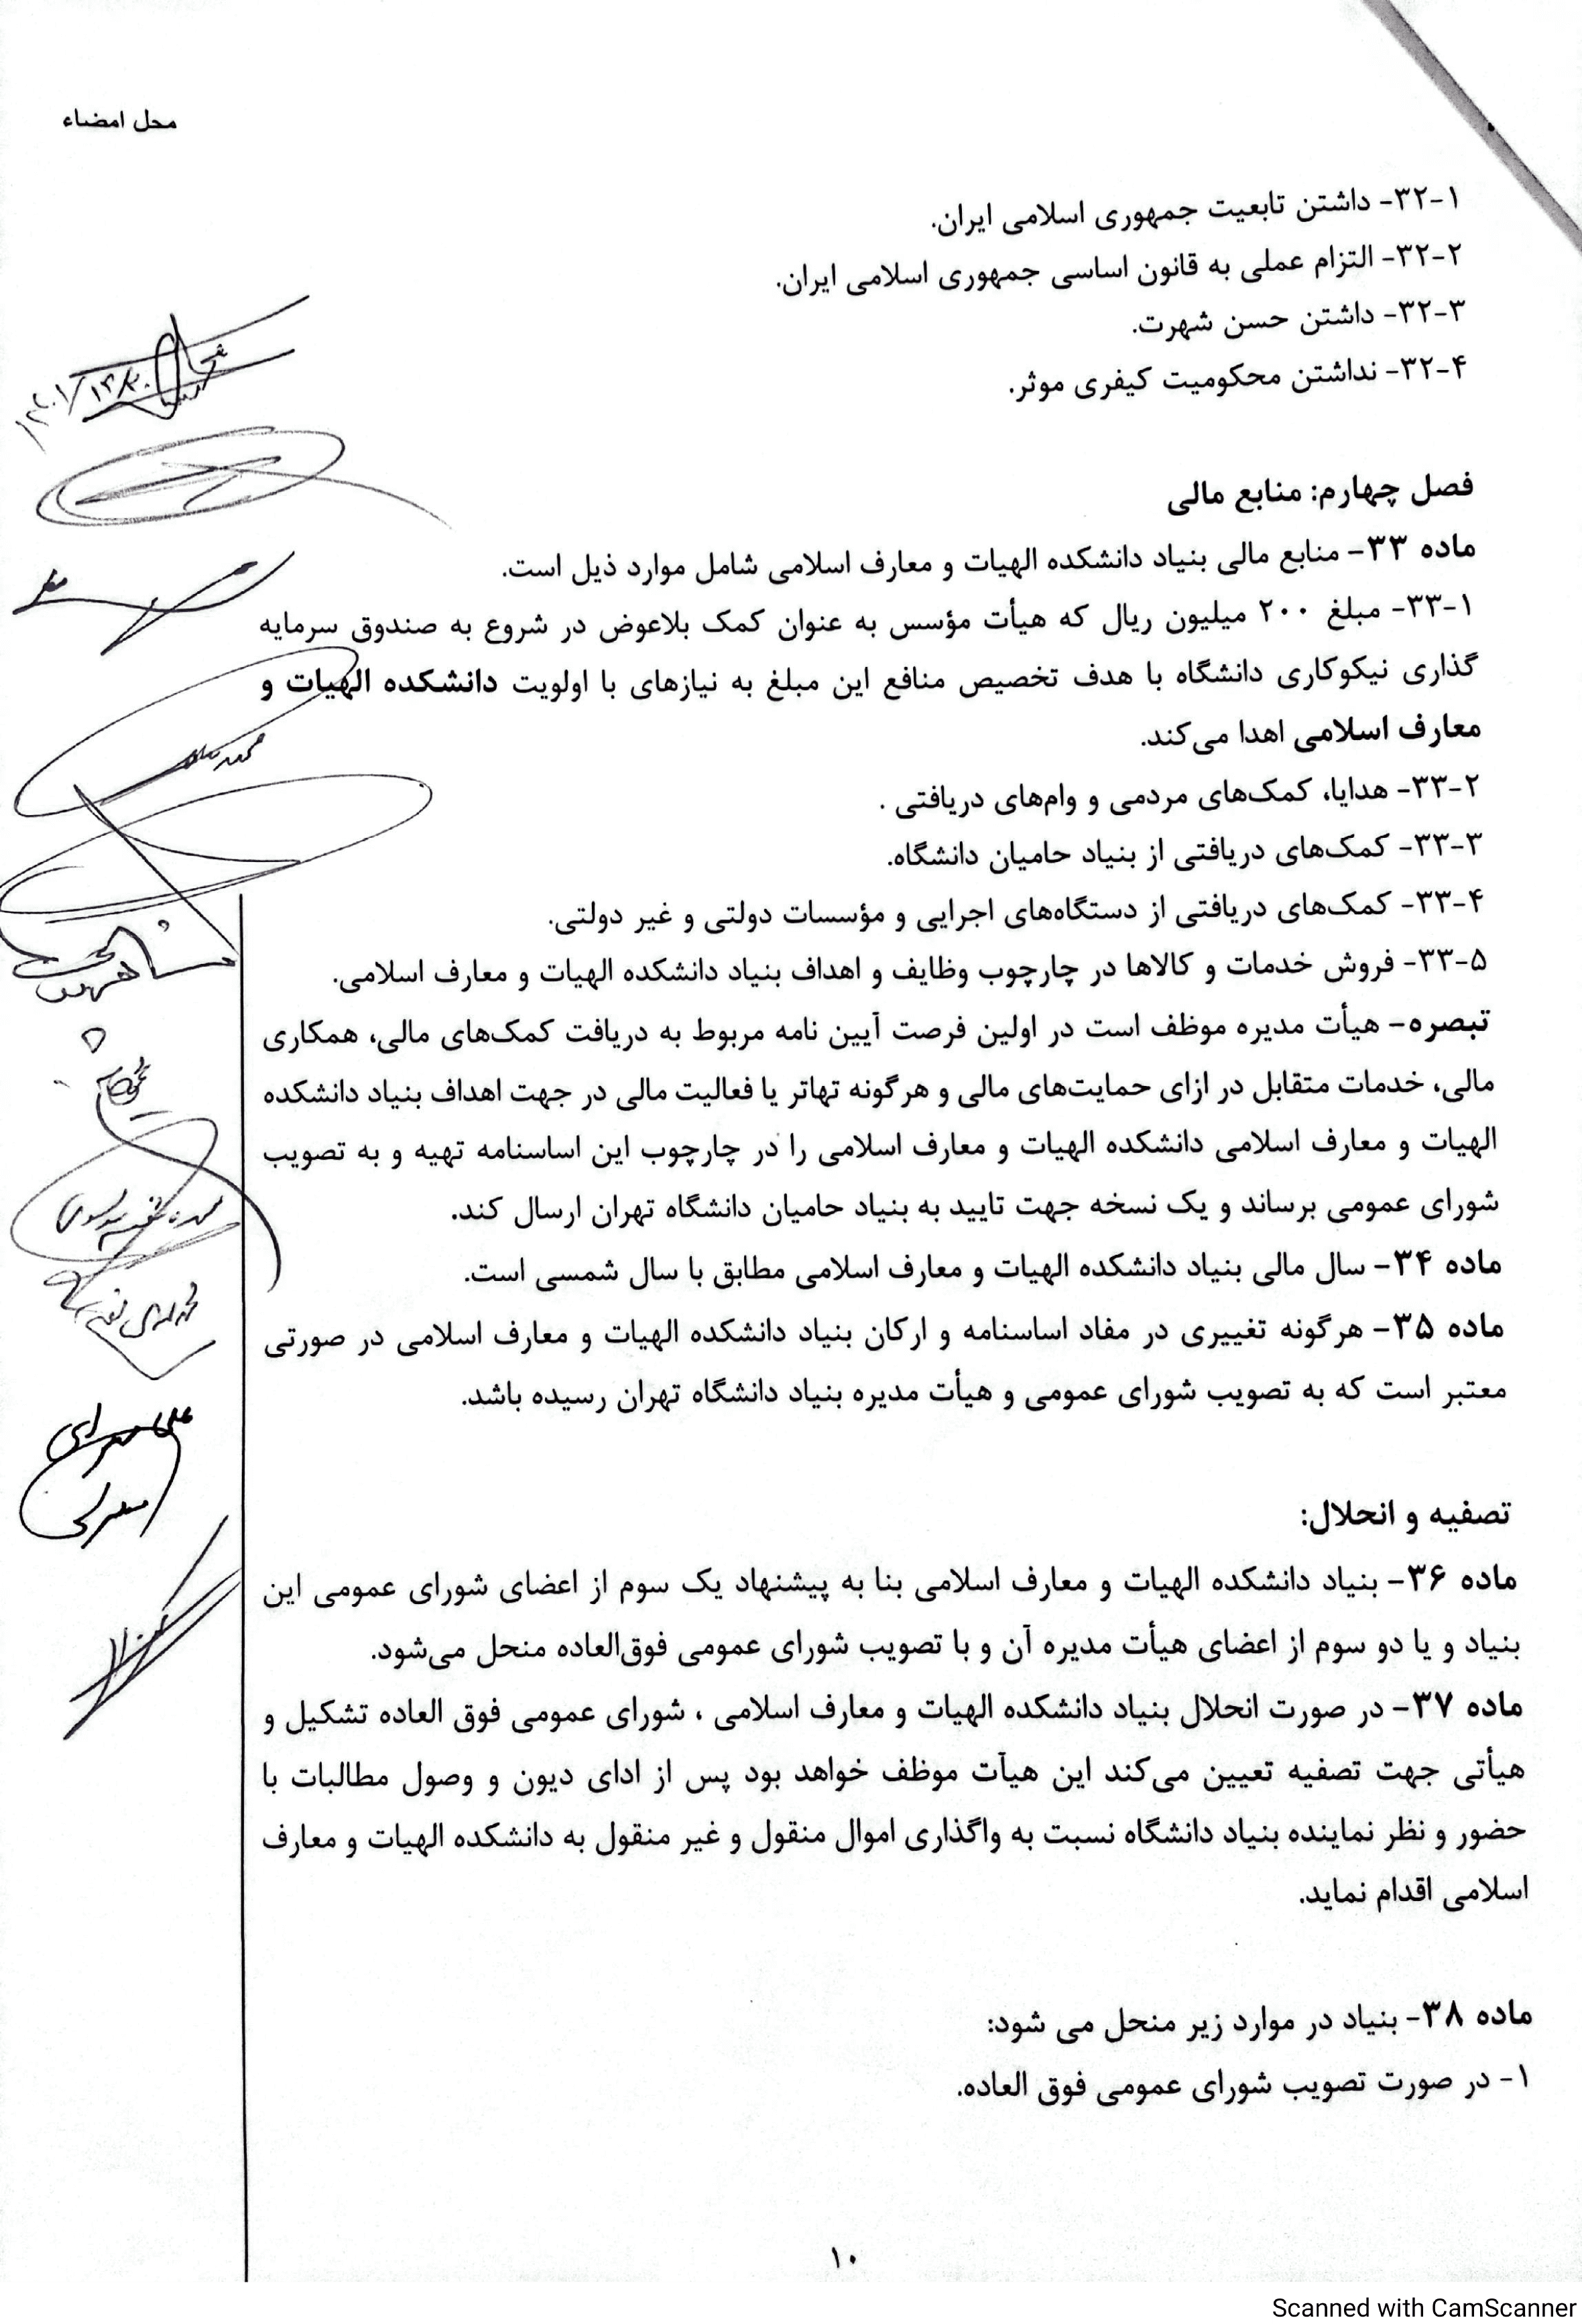 محل امضاء
۳۲-۱- داشتن تابعیت جمهوری اسلامی ایران.
۳۲-۲- التزام عملی به قانون اساسی جمهوری اسلامی ایران.
۳۲-۳- داشتن حسن شهرت.
۳۲-۴- نداشتن محکومیت کیفری موثر.
فصل چهارم: منابع مالی
ماده ۳۳- منابع مالی بنیاد دانشکده الهیات و معارف اسلامی شامل موارد ذیل است.
۳۳-۱- مبلغ ۲۰۰ میلیون ریال که هیأت مؤسس به عنوان کمک بلاعوض در شروع به صندوق سرمایه
گذاری نیکوکاری دانشگاه با هدف تخصیص منافع این مبلغ به نیازهای با اولویت دانشکده الهیات و
معارف اسلامی اهدا می‌کند.
۳۳-۲- هدایا، کمک‌های مردمی و وام‌های دریافتی .
۳۳-۳- کمک‌های دریافتی از بنیاد حامیان دانشگاه.
۳۳-۴- کمک‌های دریافتی از دستگاه‌های اجرایی و مؤسسات دولتی و غیر دولتی.
۳۳-۵- فروش خدمات و کالاها در چارچوب وظایف و اهداف بنیاد دانشکده الهیات و معارف اسلامی.
تبصره- هیأت مدیره موظف است در اولین فرصت آیین نامه مربوط به دریافت کمک‌های مالی، همکاری
مالی، خدمات متقابل در ازای حمایت‌های مالی و هرگونه تهاتر یا فعالیت مالی در جهت اهداف بنیاد دانشکده
الهیات و معارف اسلامی دانشکده الهیات و معارف اسلامی را در چارچوب این اساسنامه تهیه و به تصویب
شورای عمومی برساند و یک نسخه جهت تایید به بنیاد حامیان دانشگاه تهران ارسال کند.
ماده ۳۴- سال مالی بنیاد دانشکده الهیات و معارف اسلامی مطابق با سال شمسی است.
ماده ۳۵- هرگونه تغییری در مفاد اساسنامه و ارکان بنیاد دانشکده الهیات و معارف اسلامی در صورتی
معتبر است که به تصویب شورای عمومی و هیأت مدیره بنیاد دانشگاه تهران رسیده باشد.
تصفیه و انحلال:
ماده ۳۶- بنیاد دانشکده الهیات و معارف اسلامی بنا به پیشنهاد یک سوم از اعضای شورای عمومی این
بنیاد و یا دو سوم از اعضای هیأت مدیره آن و با تصویب شورای عمومی فوق‌العاده منحل می‌شود.
ماده ۳۷- در صورت انحلال بنیاد دانشکده الهیات و معارف اسلامی ، شورای عمومی فوق العاده تشکیل و
هیأتی جهت تصفیه تعیین می‌کند این هیآت موظف خواهد بود پس از ادای دیون و وصول مطالبات با
حضور و نظر نماینده بنیاد دانشگاه نسبت به واگذاری اموال منقول و غیر منقول به دانشکده الهیات و معارف
اسلامی اقدام نماید.
ماده ۳۸- بنیاد در موارد زیر منحل می شود:
۱- در صورت تصویب شورای عمومی فوق العاده.
۱۰
Scanned with CamScanner